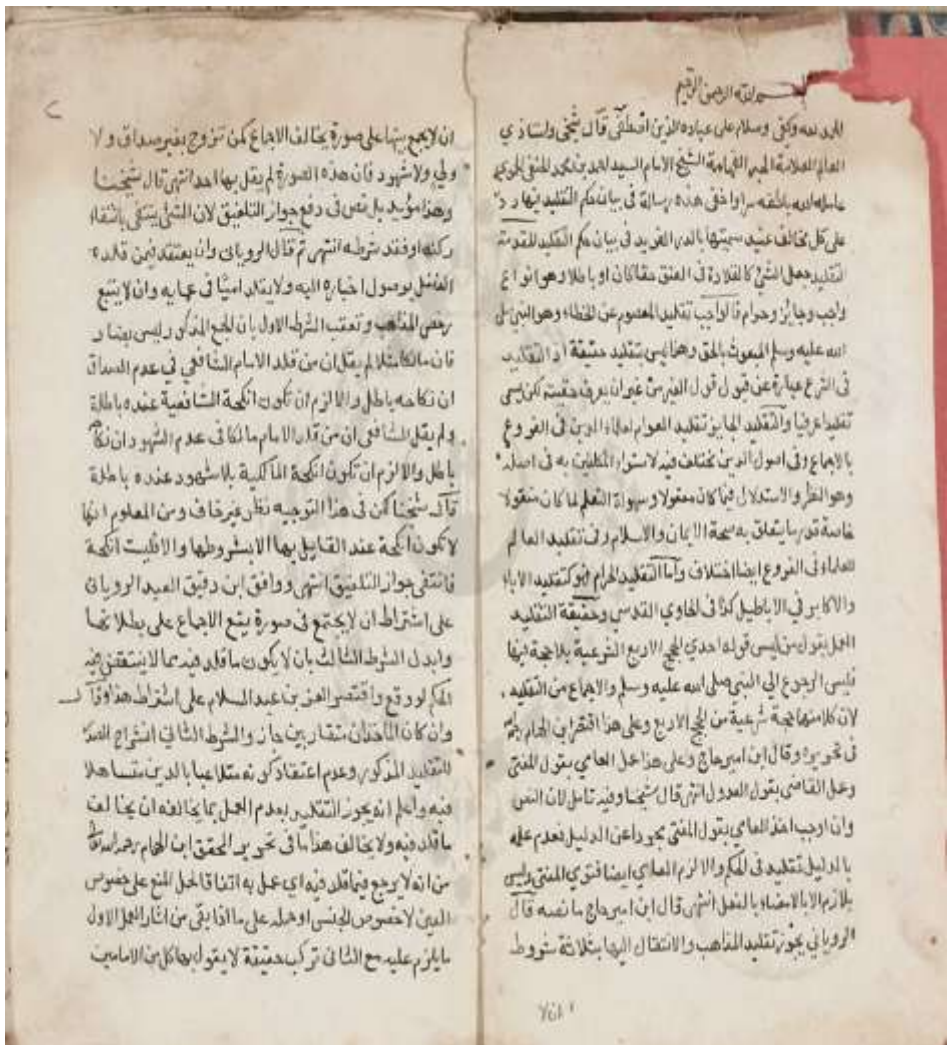 بسم الله الرحمن الرحيم
الحمد لله وكفى وسلام على عباده الذين اصطفى قال شيخى واستاذي
العالم العلامة الحبر الفهامة الشيخ الامام السيد احمد بن محمد الحنفى الحموي
عامله الله بلطفه سرا وخفى هذه رسالة فى بيان حكم التقليد فيها رد
على كل مخالف عنيد سميتها بالدر الفريد فى بيان حكم التقليد المقدمة
التقليد جعل الشئ كالقلادة فى العنق حقا كان او باطلا وهو انواع
واجب وجايز وحرام فالواجب تقليد المعصوم عن الخطاء وهو النبى صلى
الله عليه وسلم المبعوث بالحق وهذا ليس بتقليد حقيقة اذ التقليد
فى الشرع عبارة عن قبول قول الغير من غير ان يعرف حقيقته لكن يسمى
تقليدا عرفيا والتقليد الجايز تقليد العوام لعلماء الدين فى الفروع
بالاجماع وفى اصول الدين مختلف فيه لاستواء المكلفين به فى اصله
وهو النظر والاستدلال فيما كان معقولا وسهولة التعلم لما كان منقولا
خاصة قدر ما يتعلق به صحة الايمان والاسلام وفى تقليد العالم
للعلماء فى الفروع ايضا اختلاف واما التقليد الحرام فهو كتقليد الاباء
والاكابر في الاباطيل كذا فى الحاوي القدسي وحقيقة التقليد
العمل بقول من ليس قوله احدي الحجج الاربع الشرعية بلا حجة فيها
فليس الرجوع الى النبى صلى الله عليه وسلم والاجماع من التقليد
لان كلا منهما حجة شرعية من الحجج الاربع وعلى هذا اقتصر ابن الهمام
فى تحريره وقال ابن امير حاج وعلى هذا عمل العامي بقول المفتى
وعمل القاضى بقول العدول انتهى قال شيخنا وفيه تامل لان النص
وان اوجب اخذ العامي بقول المفتى مجردا عن الدليل فعدم علمه
بالدليل تقليد فى الحكم والا لزم العامي ايضا فتوي المفتى وليس
بلازم الا بالامضاء بالفعل انتهى قال ابن امير حاج ما نصه قال
الرويانى يجوز تقليد المذاهب والانتقال اليها بثلاثة شروط
ان لا يجمع بينها على صورة يخالف الاجماع كمن تزوج بغير صداق ولا
ولي ولا شهود فان هذه الصورة لم يقل بها احد انتهى قال شيخنا
وهذا مؤيد بل نص فى دفع جواز التلفيق لان الشئ ينتفى بانتفاء
ركنه او فقد شرطه انتهى ثم قال الرويانى وان يعتقد فيمن قلده
الفضل بوصول اخباره اليه ولا يقلد اميا فى عمايه وان لا يتبع
رخص المذاهب وتعقب الشرط الاول بان الجمع المذكور ليس بضار
فان مالكا مثلا لم يقل ان من قلد الامام الشافعي في عدم الصداق
ان نكاحه باطل والا لزم ان تكون انكحة الشافعية عنده باطلة
ولم يقل الشافعى ان من قلد الامام مالكا فى عدم الشهود ان نكاحه
باطل والا لزم ان تكون انكحة المالكية بلا شهود عنده باطلة
قال شيخنا لكن فى هذا التوجيه نظر غير خاف ومن المعلوم انها
لا تكون انكحة عند القايل بها الا بشروطها والا فليست انكحة
فانتفى جواز التلفيق انتهى ووافق ابن دقيق العيد الرويانى
على اشتراط ان لا يجتمع فى صورة يقع الاجماع على بطلانها
وابدل الشرط الثالث بان لا يكون ما قلد فيه مما لا ينتقض فيه
الحكم لو وقع واقتصر العز بن عبد السلام على اشتراط هذا وقال
وان كان الماخذان متقاربين جاز والشرط الثانى انشراح الصدر
للتقليد المذكور وعدم اعتقاد كونه متلاعبا بالدين متساهلا
فيه واعلم انه يجوز التقليد بعدم العمل بما يخالفه ان يخالف
ما قلد فيه ولا يخالف هذا ما فى تحرير المحقق ابن الهمام رحمه الله
من انه لا يرجع فيما قلد فيه اي عمل به اتفاقا لحمل المنع على خصوص
العين لا خصوص الجنس او حمله على ما اذا بقى من اثار العمل الاول
ما يلزم عليه مع الثانى تركب حقيقة لا يقول بها كل من الامامين